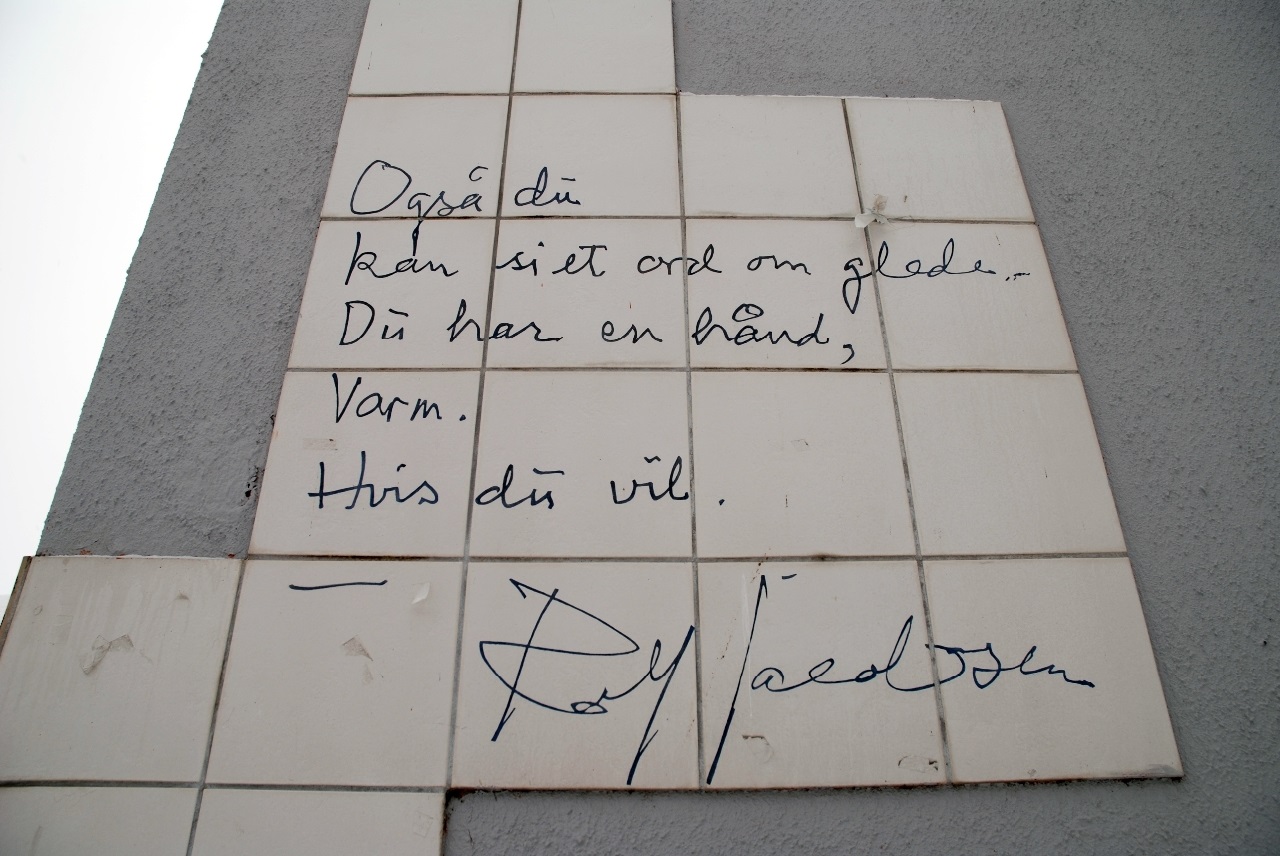 Også du
kan si et ord om glede.-
Du har en hånd,
Varm.
Hvis du vil.
—
Rolf Jacobsen